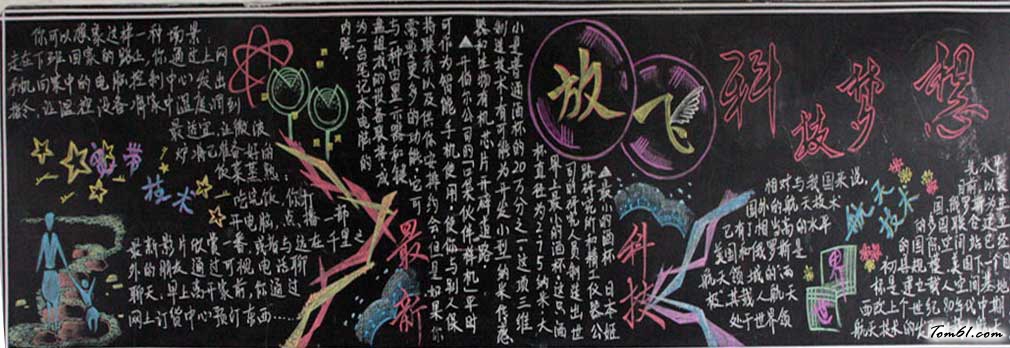 放飞
科技梦想
你可以想象这样一种场景:
走在下班回家的路上,你通过上网
手机向家中的电脑控制中心发出
指令,让温控设备将家中温度调到
最适宜,让微波
炉准备好的
饭菜蒸熟
宽带
技术
吃完饭,你打
开电脑,点播一部
最新影片欣赏一番,或者与远在千里之
外的朋友通过可视电话聊
聊天。早上离开家前,你通过
网上订货中心预订东西……
最新
科技
▲开伯尔公司的“口袋伙伴样机”平时
可作为智能手机使用,使你与别人保
持联系以及供你安排约会。但是如果你
需要更多的功能,它可
与一种由显示器和键
盘组成的设备联接,成
为一台笔记本电脑的
内脏。
▲最小的酒杯 日本姬
路研究所和精工仪器公
司的研究人员制造出世
界上最小的酒杯,这只酒
杯直径为275纳米,大
小是普通酒杯的20万分之一。这项三维
制造技术有可能为开发小型的纳米传感
器和生物有机芯片开辟道路
航天
技术
相对与我国来说,
国外的航天技术
已有了相当高的水平
美国和俄罗斯是
航天领域的两
极,其载人航天
处于世界领
先水平
目前,以美
国俄罗斯为主
的多国联合建立
的国际空间站已经
初具规模,美国下一个目
标是建立载人空间基地
而改上个世纪80年代中期
航天技术的
Tom61.com